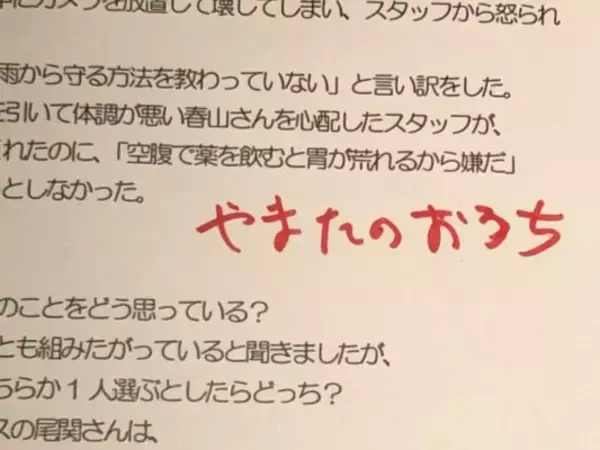 にカメラを放置して壊してしまい、スタッフから怒られ
雨から守る方法を教わっていない」と言い訳をした。
を引いて体調が悪い春山さんを心配したスタッフが、
れたのに、「空腹で薬を飲むと胃が荒れるから嫌だ」
としなかった。
やまたのおろち
のことをどう思っている？
とも組みたがっていると聞きましたが、
ちらか1人選ぶとしたらどっち？
スの尾関さんは、